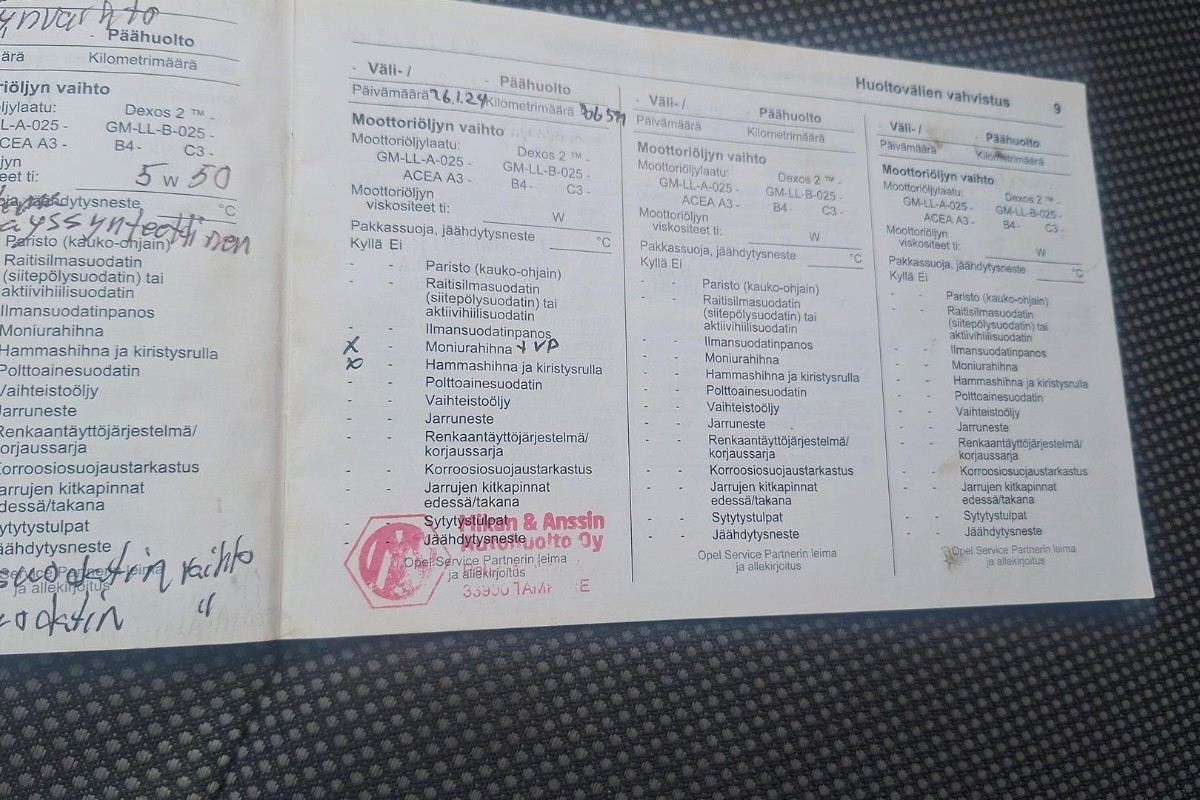 Päähuolto
Kilometrimäärä
Dexos 2 ™ -
LL-A-025 - GM-LL-B-025 -
ACEA A3 - B4 - C3 -
5 W 50
°C
Paristo (kauko-ohjain)
Raitisilmasuodatin
(siitepölysuodatin) tai
aktiivihiilisuodatin
Ilmansuodatinpanos
Moniurahihna
Hammashihna ja kiristysrulla
Polttoainesuodatin
Vaihteistoöljy
Jarruneste
Renkaantäyttöjärjestelmä/
korjaussarja
Korroosiosuojaustarkastus
Jarrujen kitkapinnat
edessä/takana
Sytytystulpat
Jäähdytysneste
vaihto
ja allekirjoitus
Huoltovälien vahvistus 9
- Väli- / - Päähuolto
Päivämäärä 26.1.24 Kilometrimäärä
Moottoriöljyn vaihto
Moottoriöljylaatu: Dexos 2 ™ -
GM-LL-A-025 - GM-LL-B-025 -
ACEA A3 - B4 - C3 -
Moottoriöljyn
viskositeet ti: W
Pakkassuoja, jäähdytysneste °C
Kyllä Ei
- - Paristo (kauko-ohjain)
- - Raitisilmasuodatin
(siitepölysuodatin) tai
aktiivihiilisuodatin
- - Ilmansuodatinpanos
X - Moniurahihna + VP
X - Hammashihna ja kiristysrulla
- - Polttoainesuodatin
- - Vaihteistoöljy
- - Jarruneste
- - Renkaantäyttöjärjestelmä/
korjaussarja
- - Korroosiosuojaustarkastus
- - Jarrujen kitkapinnat
edessä/takana
- - Sytytystulpat
- - Jäähdytysneste
Opel Service Partnerin leima
ja allekirjoitus
Mikan & Anssin
Autohuolto Oy
- Väli- / - Päähuolto
Päivämäärä Kilometrimäärä
Moottoriöljyn vaihto
Moottoriöljylaatu: Dexos 2 ™ -
GM-LL-A-025 - GM-LL-B-025 -
ACEA A3 - B4- C3 -
Moottoriöljyn
viskositeet ti: W
Pakkassuoja, jäähdytysneste °C
Kyllä Ei
- - Paristo (kauko-ohjain)
- - Raitisilmasuodatin
(siitepölysuodatin) tai
aktiivihiilisuodatin
- - Ilmansuodatinpanos
- - Moniurahihna
- - Hammashihna ja kiristysrulla
- - Polttoainesuodatin
- - Vaihteistoöljy
- - Jarruneste
- - Renkaantäyttöjärjestelmä/
korjaussarja
- - Korroosiosuojaustarkastus
- - Jarrujen kitkapinnat
edessä/takana
- - Sytytystulpat
- - Jäähdytysneste
Opel Service Partnerin leima
ja allekirjoitus
- Väli- / - Päähuolto
Päivämäärä Kilometrimäärä
Moottoriöljyn vaihto
Moottoriöljylaatu: Dexos 2 ™ -
GM-LL-A-025 - GM-LL-B-025 -
ACEA A3 - B4 - C3 -
Moottoriöljyn
viskositeet ti: W
Pakkassuoja, jäähdytysneste °C
Kyllä Ei
- - Paristo (kauko-ohjain)
- - Raitisilmasuodatin
(siitepölysuodatin) tai
aktiivihiilisuodatin
- - Ilmansuodatinpanos
- - Moniurahihna
- - Hammashihna ja kiristysrulla
- - Polttoainesuodatin
- - Vaihteistoöljy
- - Jarruneste
- - Renkaantäyttöjärjestelmä/
korjaussarja
- - Korroosiosuojaustarkastus
- - Jarrujen kitkapinnat
edessä/takana
- - Sytytystulpat
- - Jäähdytysneste
Opel Service Partnerin leima
ja allekirjoitus